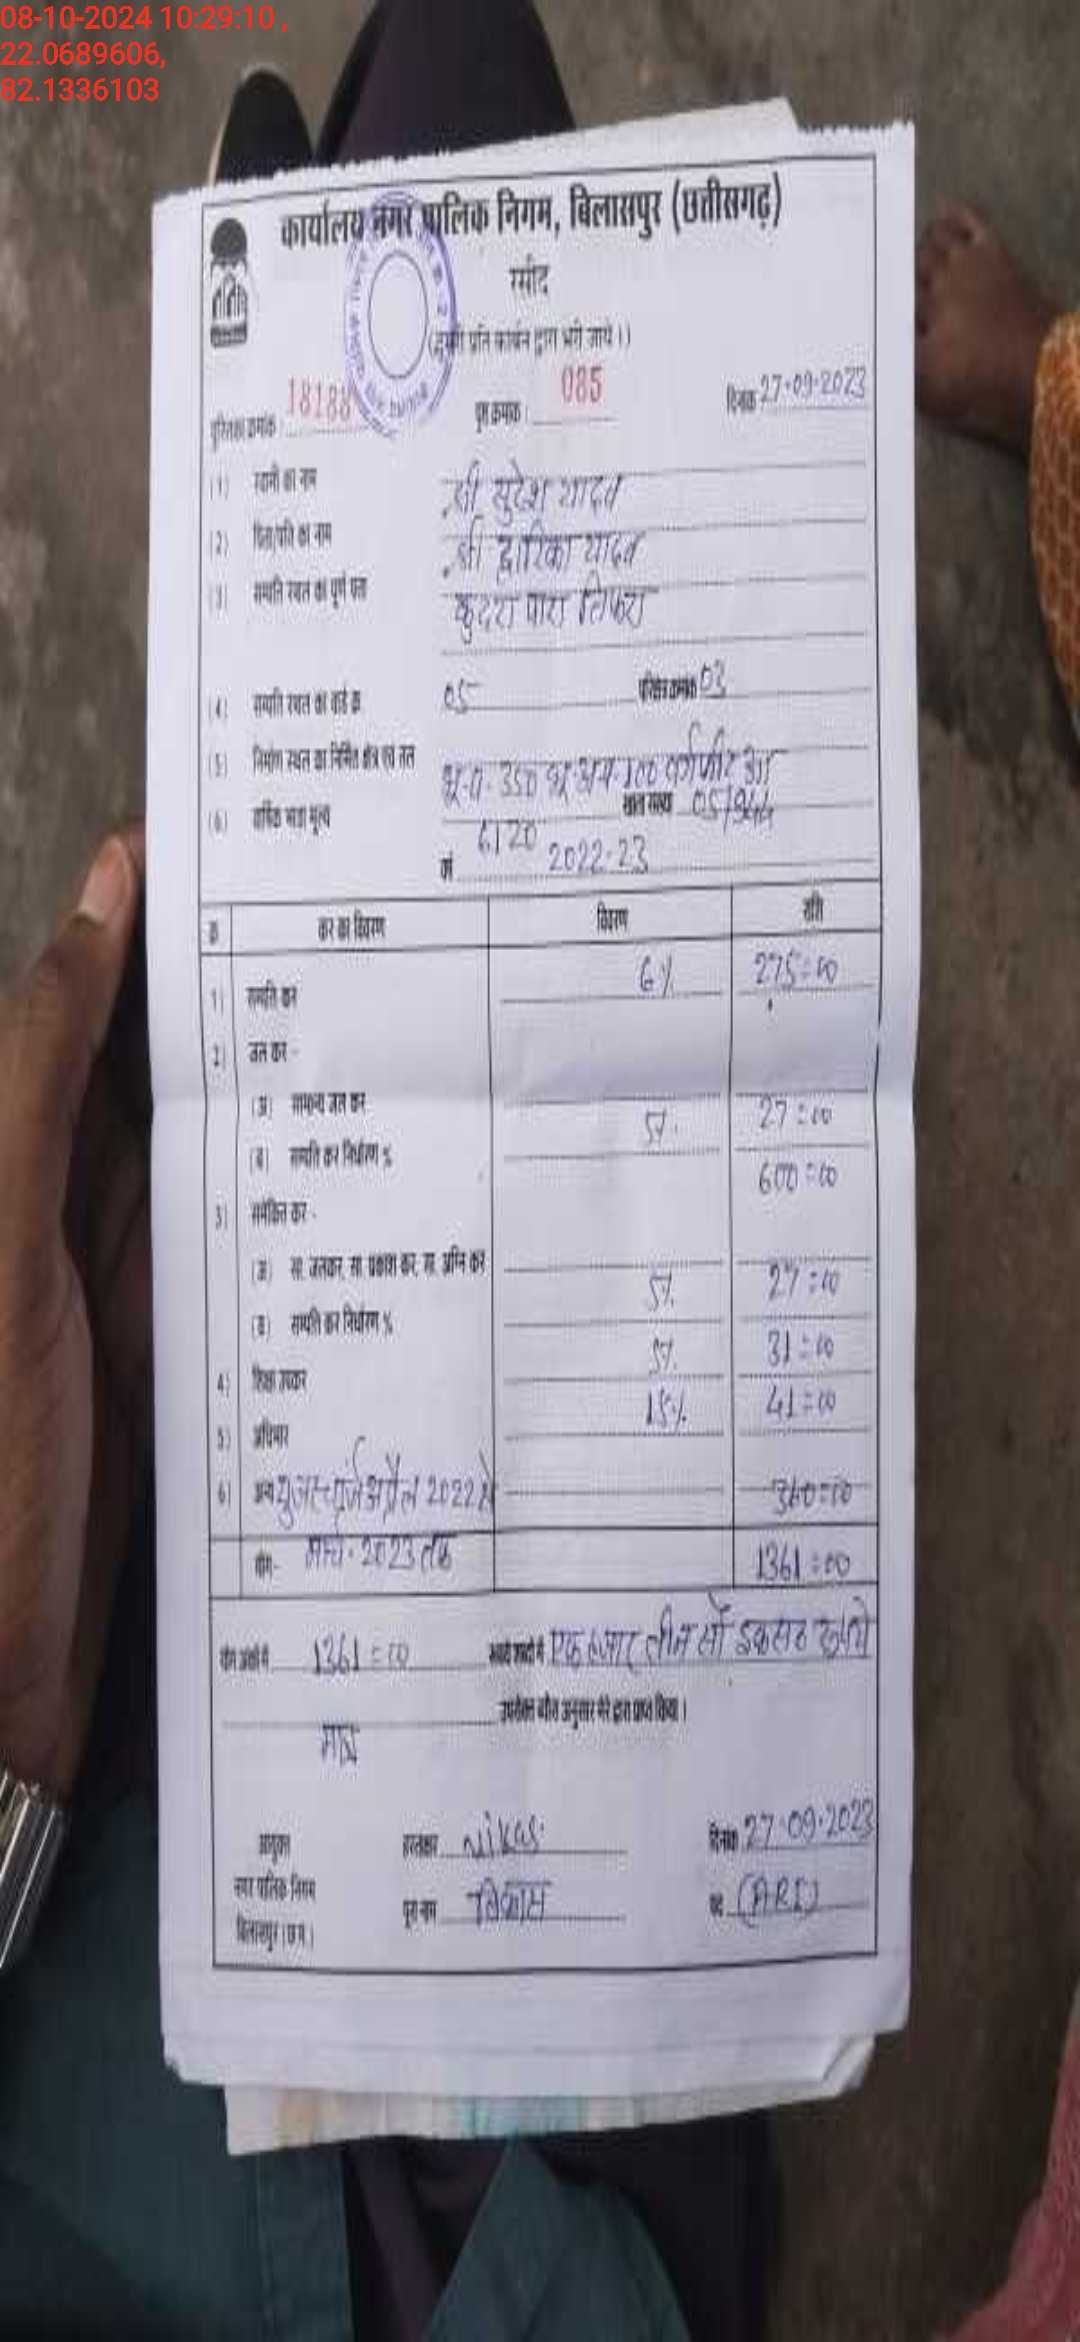 08-10-2024 10:29:10 ,
22.0689606,
82.1336103
कार्यालय नगर पालिक निगम, बिलासपुर (छत्तीसगढ़)
रसीद
(दूसरी प्रति कार्बन द्वारा भरी जाये।)
पुस्तिका क्रमांक : 18188 पृष्ठ क्रमांक : 085 दिनांक 27-09-2023
(1) स्वामी का नाम श्री सुरेश यादव
(2) पिता/पति का नाम श्री द्वारिका यादव
(3) सम्पत्ति स्थल का पूर्ण पता कुदरा पारा तिफरा
(4) सम्पत्ति स्थल का वार्ड क्र 05 परिक्षेत्र क्रमांक 03
(5) निर्माण स्थल का निर्मित क्षेत्र एवं तल 350 100 वर्गफीट
(6) वार्षिक भाड़ा मूल्य 6120 खाता संख्या 05/944
वर्ष 2022-23
क्र कर का विवरण विवरण राशि
1) सम्पत्ति कर 6% 275=00
2) जल कर -
(अ) सामान्य जल कर
(ब) सम्पत्ति कर निर्धारण % 5% 27=00
3) समेकित कर - 600=00
(अ) सा. जलकर, सा. प्रकाश कर, सा. अग्नि कर
(ब) सम्पत्ति कर निर्धारण % 5% 27=00
4) शिक्षा उपकर 5% 31=00
5) अधिभार 15% 41=00
6) अन्य यूजर चार्ज अप्रैल 2022 से 360=00
योग- मार्च-2023 तक 1361=00
योग अंकों में 1361=00 अक्षरी शब्दों में एक हजार तीन सौ इकसठ रूपये
मात्र उपरोक्त ब्यौरा अनुसार मेरे द्वारा प्राप्त किया।
आयुक्त हस्ताक्षर Vikas दिनांक 27-09-2023
नगर पालिक निगम पूरा नाम विकास पद (ARI)
बिलासपुर (छ.ग.)